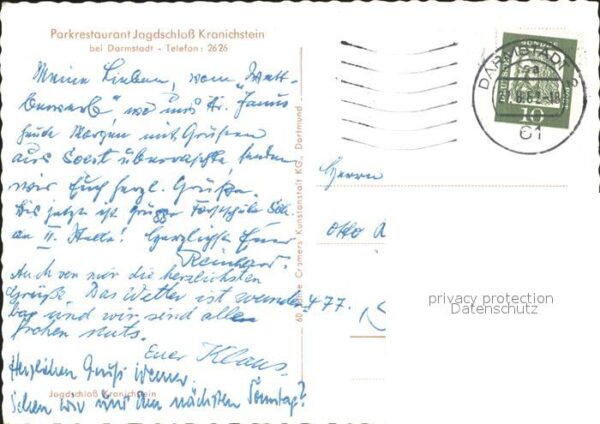 Parkrestaurant Jagdschloß Kranichstein
bei Darmstadt - Telefon: 2626
Meine Lieben, vom "Wett-
bewerb", wo uns Hr. Janus
heute Morgen mit Grüßen
aus Soest überraschte, senden
wir Euch herzl. Grüße.
Bis jetzt ist Gruppe
an II. Stelle! Herzlichst Euer
Reinhard.
Auch von mir die herzlichsten
Grüße. Das Wetter ist wunder-
bar und wir sind alle
frohen Muts.
Euer Klaus.
Herzlichen Gruß Werner.
Sehen wir uns am nächsten Sonntag?
Jagdschloß Kranichstein
60 Jahre Cramers Kunstanstalt KG., Dortmund
477
DARMSTADT
10
Herrn
Otto A
privacy protection
Datenschutz